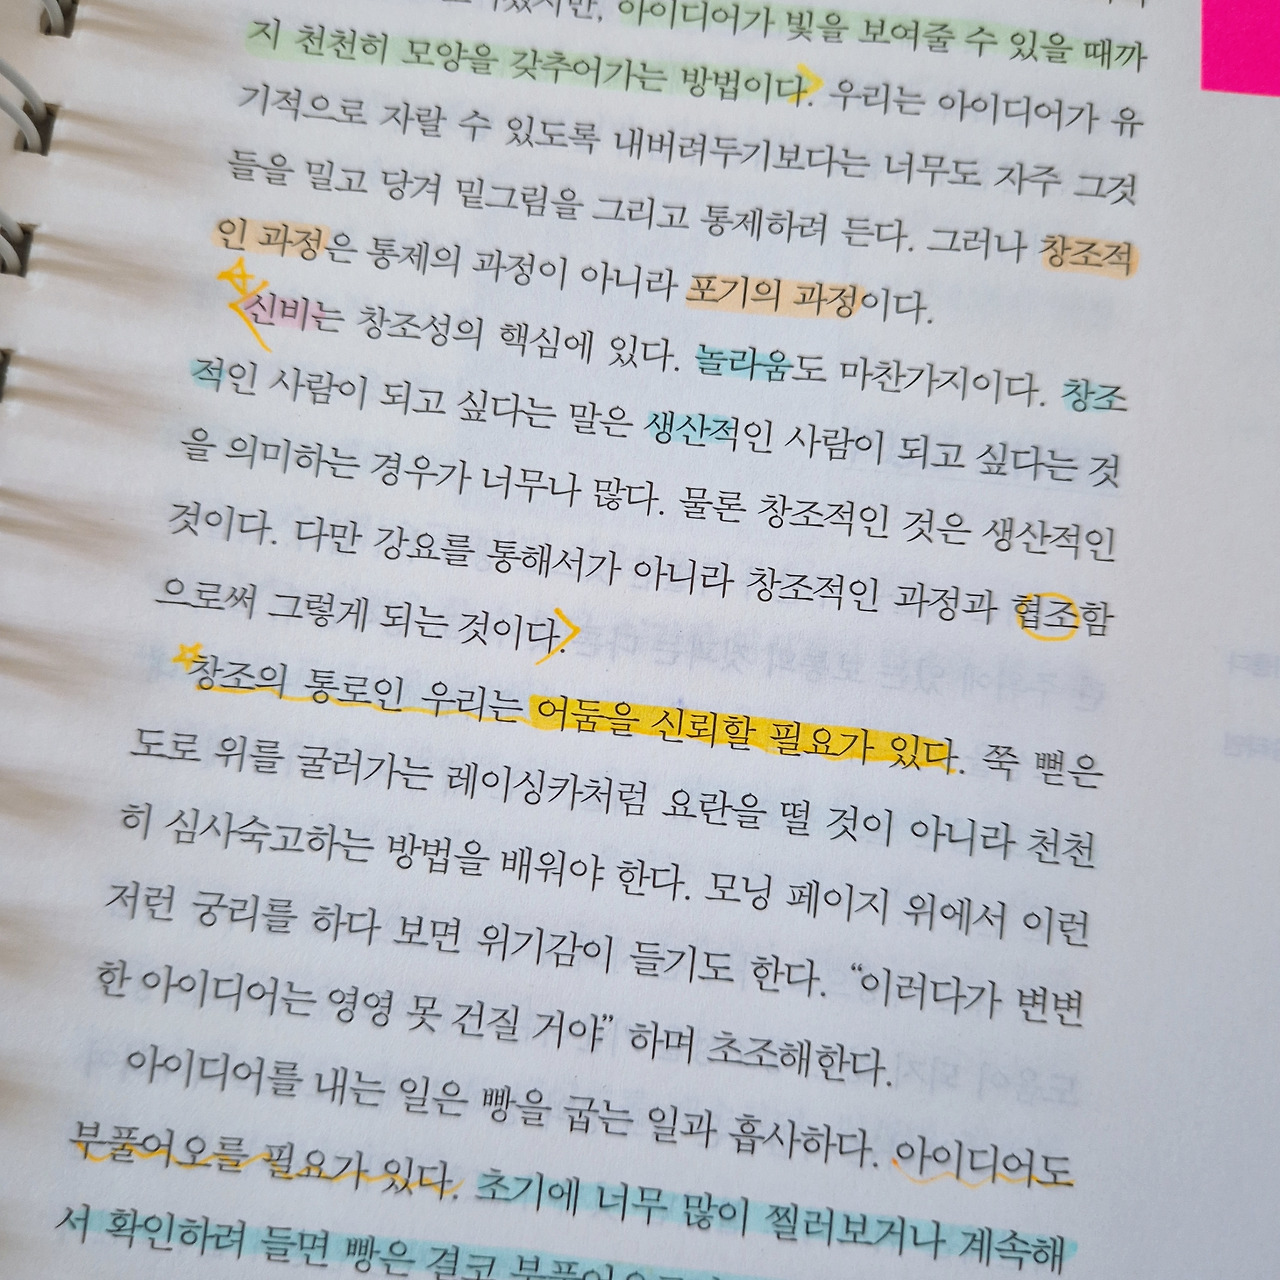 아이디어가 빛을 보여줄 수 있을 때까
지 천천히 모양을 갖추어가는 방법이다. 우리는 아이디어가 유
기적으로 자랄 수 있도록 내버려두기보다는 너무도 자주 그것
들을 밀고 당겨 밑그림을 그리고 통제하려 든다. 그러나 창조적
인 과정은 통제의 과정이 아니라 포기의 과정이다.
신비는 창조성의 핵심에 있다. 놀라움도 마찬가지이다. 창조
적인 사람이 되고 싶다는 말은 생산적인 사람이 되고 싶다는 것
을 의미하는 경우가 너무나 많다. 물론 창조적인 것은 생산적인
것이다. 다만 강요를 통해서가 아니라 창조적인 과정과 협조함
으로써 그렇게 되는 것이다.
창조의 통로인 우리는 어둠을 신뢰할 필요가 있다. 쭉 뻗은
도로 위를 굴러가는 레이싱카처럼 요란을 떨 것이 아니라 천천
히 심사숙고하는 방법을 배워야 한다. 모닝 페이지 위에서 이런
저런 궁리를 하다 보면 위기감이 들기도 한다. “이러다가 변변
한 아이디어는 영영 못 건질 거야” 하며 초조해한다.
아이디어를 내는 일은 빵을 굽는 일과 흡사하다. 아이디어도
부풀어 오를 필요가 있다. 초기에 너무 많이 찔러보거나 계속해
서 확인하려 들면 빵은 결코